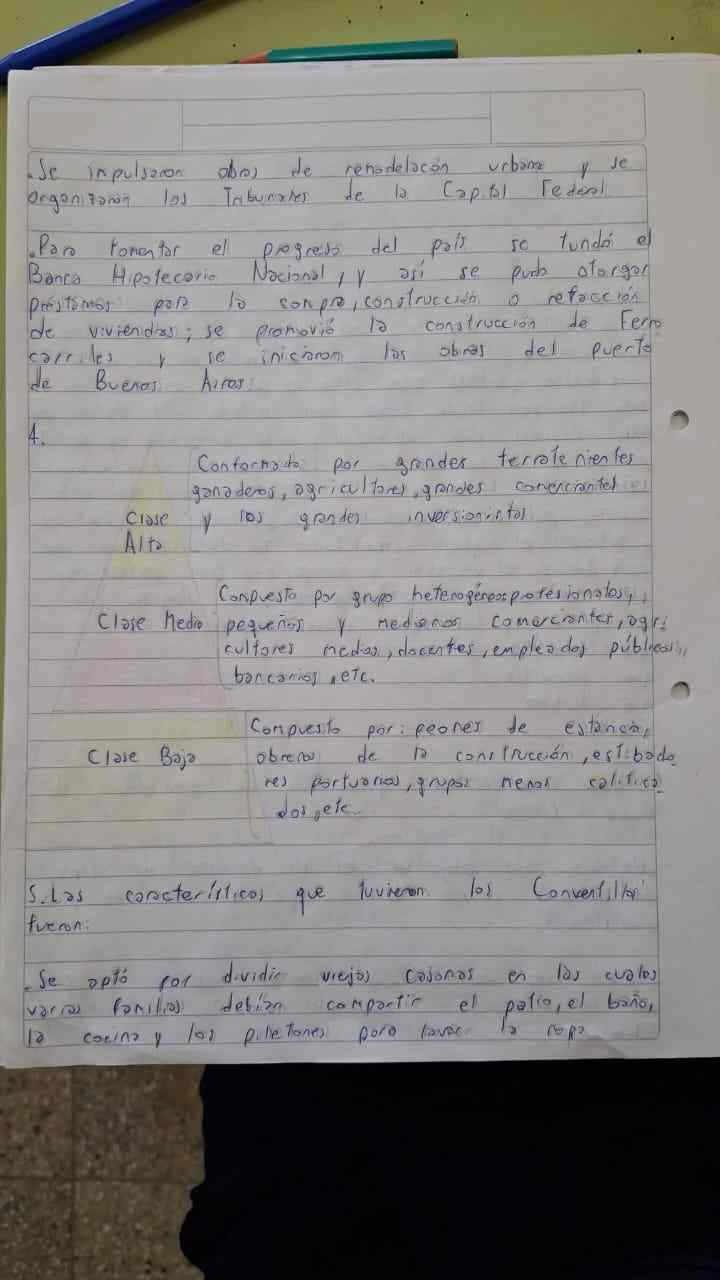 .Se impulsaron obras de remodelacón urbana y se
Organizaron los Tribunales de la Capital Federal
.Para fomentar el progreso del país se fundó el
Banco Hipotecario Nacional, y así se pudo otorgar
préstamos para la compra, construcción o refacción
de viviendas; se promovió la construcción de Ferro
carriles y se iniciaron las obras del puerto
de Buenos Aires.
4.
Conformado por grandes terratenientes
ganaderos, agricultores, grandes comerciantes
Clase y los grandes inversionistas
Alta
Compuesto por grupo heterogéneos profesionales,
Clase Media pequeños y medianos comerciantes, agri
cultores medios, docentes, empleados públicos,
bancarios, etc.
Compuesto por: peones de estancia,
Clase Baja obreros de la construcción, estibado
res portuarios, grupos menos califica
dos, etc.
5. Las características que tuvieron los Conventillos
fueron:
.Se optó por dividir viejas casonas en las cuales
varias familias debían compartir el patio, el baño,
la cocina y los piletones para lavar la ropa